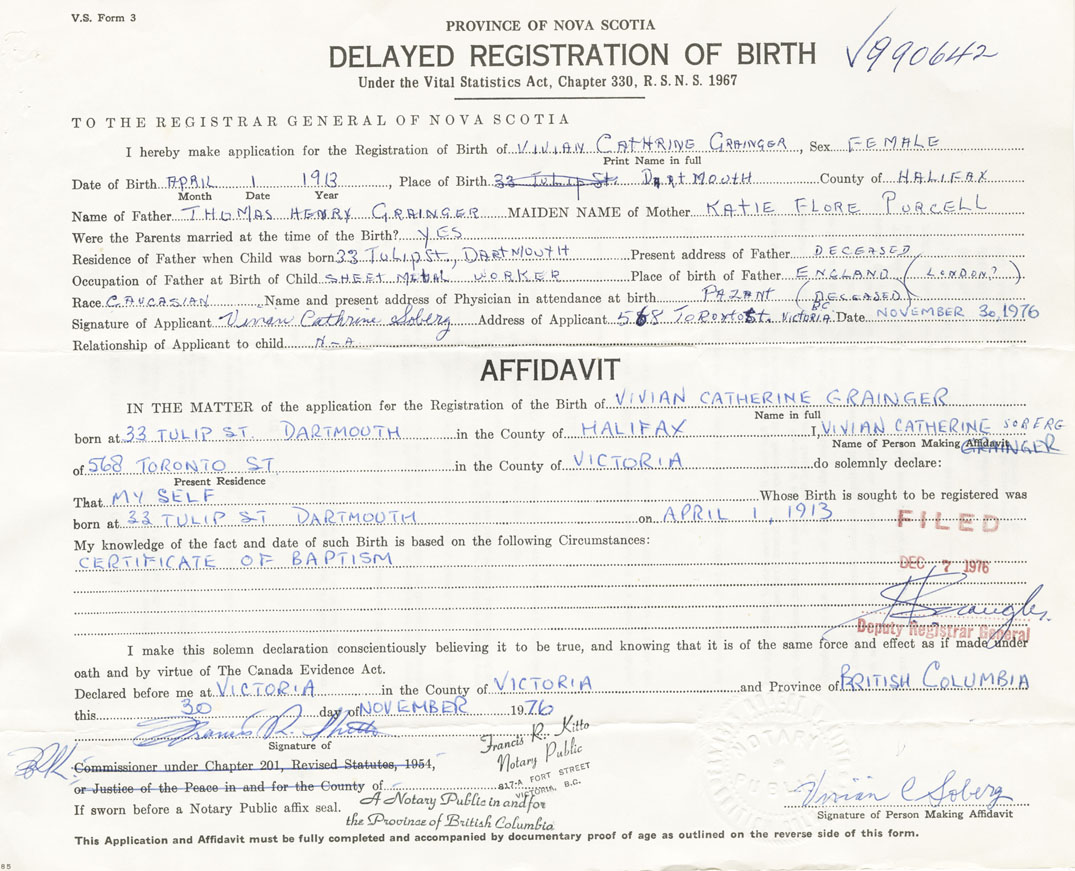 V.S. Form 3
PROVINCE OF NOVA SCOTIA
DELAYED REGISTRATION OF BIRTH
√990642
Under the Vital Statistics Act, Chapter 330, R.S.N.S. 1967
TO THE REGISTRAR GENERAL OF NOVA SCOTIA
I hereby make application for the Registration of Birth of VIVIAN CATHRINE GRAINGER, Sex FEMALE
Print Name in full
Date of Birth APRIL 1 1913, Place of Birth 33 Tulip St. DARTMOUTH County of HALIFAX
Month Date Year
Name of Father THOMAS HENRY GRAINGER MAIDEN NAME of Mother KATIE FLORE PURCELL
Were the Parents married at the time of the Birth? YES
Residence of Father when Child was born 33 TULIP ST, DARTMOUTH Present address of Father DECEASED
Occupation of Father at Birth of Child SHEET METAL WORKER Place of birth of Father ENGLAND (LONDON?)
Race CAUCASIAN Name and present address of Physician in attendance at birth PAZANT (DECEASED)
Signature of Applicant Vivian Cathrine Soberg Address of Applicant 568 TORONTO St. VICTORIA BC Date NOVEMBER 30, 1976
Relationship of Applicant to child N-A
AFFIDAVIT
IN THE MATTER of the application for the Registration of the Birth of VIVIAN CATHERINE GRAINGER
Name in full
born at 33 TULIP ST. DARTMOUTH in the County of HALIFAX I, VIVIAN CATHERINE SOBERG
Name of Person Making Affidavit GRAINGER
of 568 TORONTO ST in the County of VICTORIA do solemnly declare:
Present Residence
That MY SELF Whose Birth is sought to be registered was
born at 33 TULIP ST DARTMOUTH on APRIL 1, 1913
FILED
My knowledge of the fact and date of such Birth is based on the following Circumstances:
CERTIFICATE OF BAPTISM
DEC 7 1976
Deputy Registrar General
I make this solemn declaration conscientiously believing it to be true, and knowing that it is of the same force and effect as if made under
oath and by virtue of The Canada Evidence Act.
Declared before me at VICTORIA in the County of VICTORIA and Province of BRITISH COLUMBIA
this 30 day of NOVEMBER 1976
Francis R. Kitto
Signature of
Francis R. Kitto
Notary Public
817-A FORT STREET
VICTORIA, B.C.
Commissioner under Chapter 201, Revised Statutes, 1954,
or Justice of the Peace in and for the County of
If sworn before a Notary Public affix seal.
A Notary Public in and for
the Province of British Columbia
Vivian C Soberg
Signature of Person Making Affidavit
This Application and Affidavit must be fully completed and accompanied by documentary proof of age as outlined on the reverse side of this form.